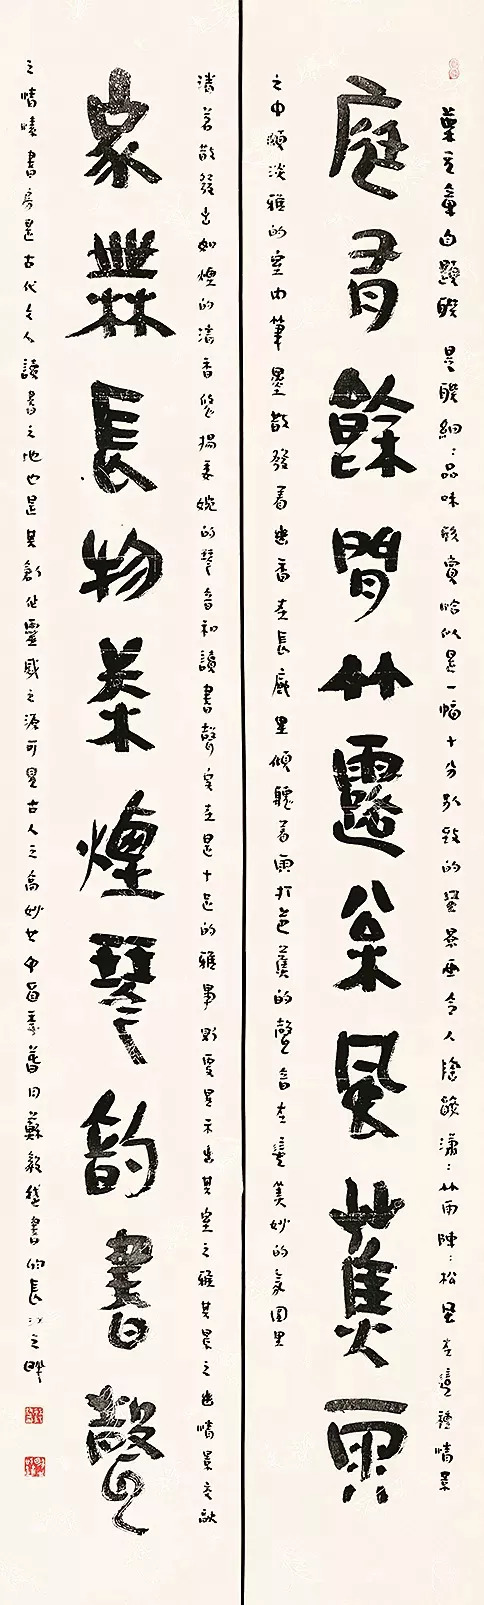 自題聯是聯細:品味欣賞恰似是一幅十分別致的風景画令人瀟:竹雨陣:松風在這種情景
庭有餘閒竹露枀風蕉雨
之中頗淡雅的室内筆墨散發着幽香在長廊里傾聽着雨打芭蕉的聲音在這美妙的氛圍里
清茗散發出如煙的清香悠揚委婉的琴音和讀書聲實在是十足的雅事其室之雅其景之幽情景交融
家橆長物茶煙琴韵書聲
之情味書房是古代文人讀書之地也是其創作靈感之源可見古人之高妙也月蘇毅書於長沙之畔